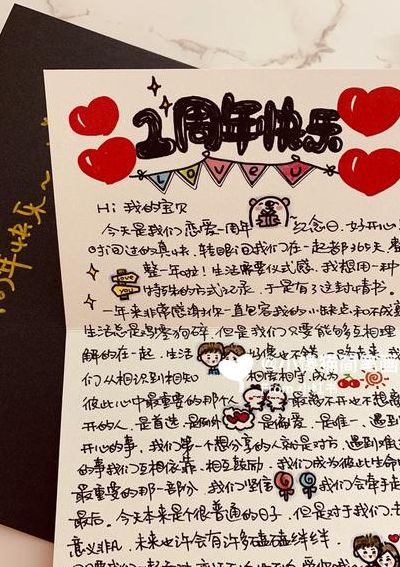 1周年快乐
LOVE U
Hi 我的宝贝
今天是我们恋爱一周年 纪念日 好开心
时间过的真快 转眼间我们在一起都365天
整一年啦! 生活需要仪式感 我想用一种
love you
特殊的方式记录 于是有了这封情书.
一年来非常感谢你一直包容我的小缺点和不成
生活总是鸡零狗碎 但是我们只要能够互相理
解的在一起. 生活
们从相识到相知 相守 成为
彼此心中最重要的那个人 最离不开也不想离
开的人. 是首选 是例外 是偏爱. 是唯一. 遇到
开心的事. 我们第一个想分享的人就是对方. 遇到难
的事我们互相依靠. 相互鼓励. 我们成为彼此生命
最重要的那一部分 我们坚信 我们会牵手走
最后. 今天本来是个很普通的日子. 但是对于我们
意义非凡. 未来也许会有许多磕磕绊绊.
周年快乐~